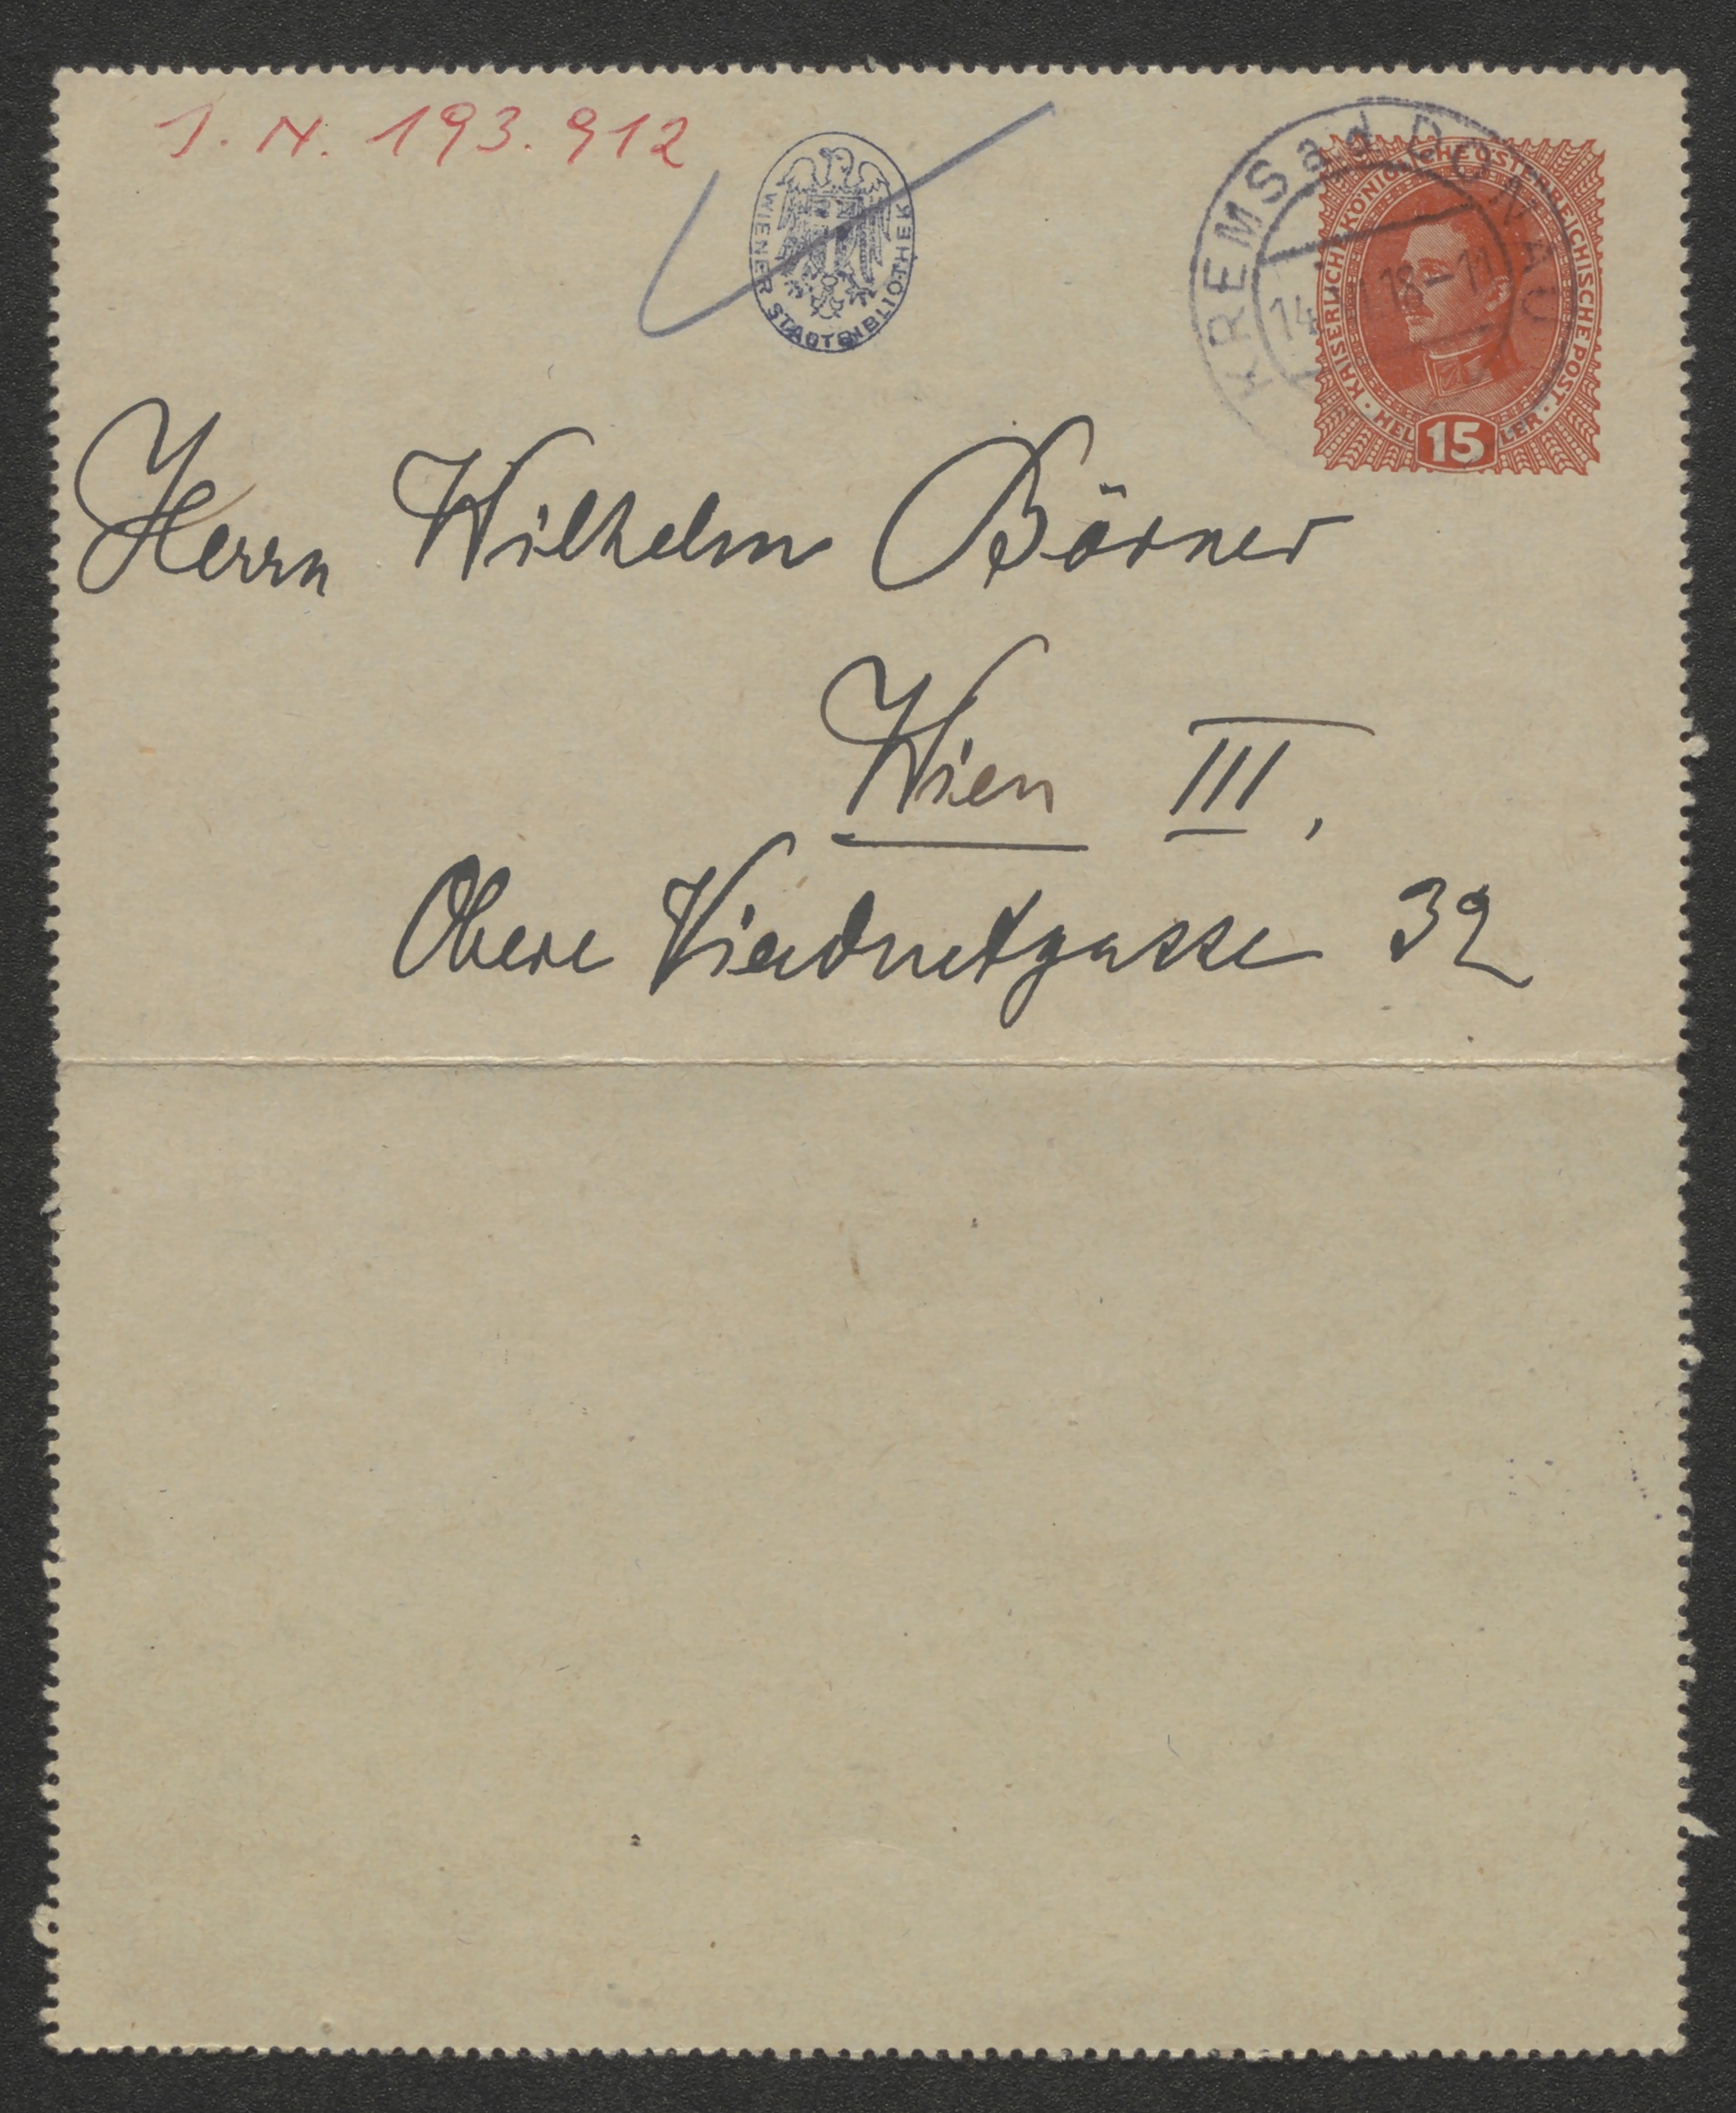 J. N. 193.912
WIENER STADTBIBLIOTHEK
KREMS a.d. DONAU
14 18-11
KAISERLICHE KÖNIGLICHE ÖSTERREICHISCHE POST
HELLER
15
Herrn Wilhelm Börner
Wien III,
Obere Viaductgasse 32